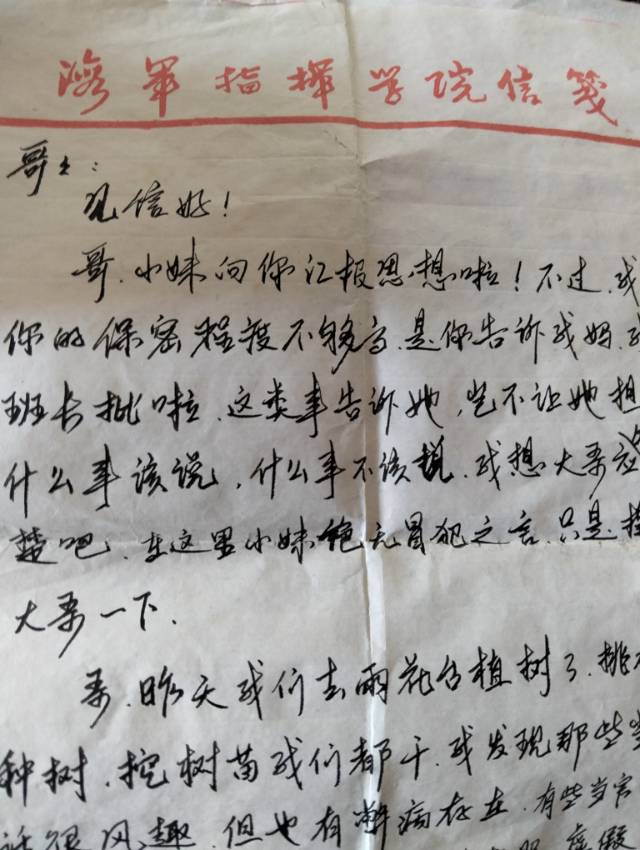 海军指挥学院信笺
哥哥:
见信好!
哥.小妹向你汇报思想啦!不过.我
你的保密程度不够高.是你告诉我妈.我
班长批啦.这类事告诉她,岂不让她担
什么事该说,什么事不该说.我想大哥应
楚吧.在这里小妹绝无冒犯之言.只是提
大哥一下.
哥.昨天我们去雨花台植树了.挑水
种树.挖树苗我们都干.我发现那些当
话很风趣.但也有弊病存在.有些当官
虚假